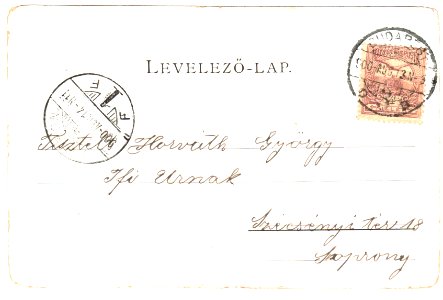 LEVELEZŐ-LAP.
Tisztelt Horváth György
Ifi Urnak
Szécsényi tér 18
Soprony